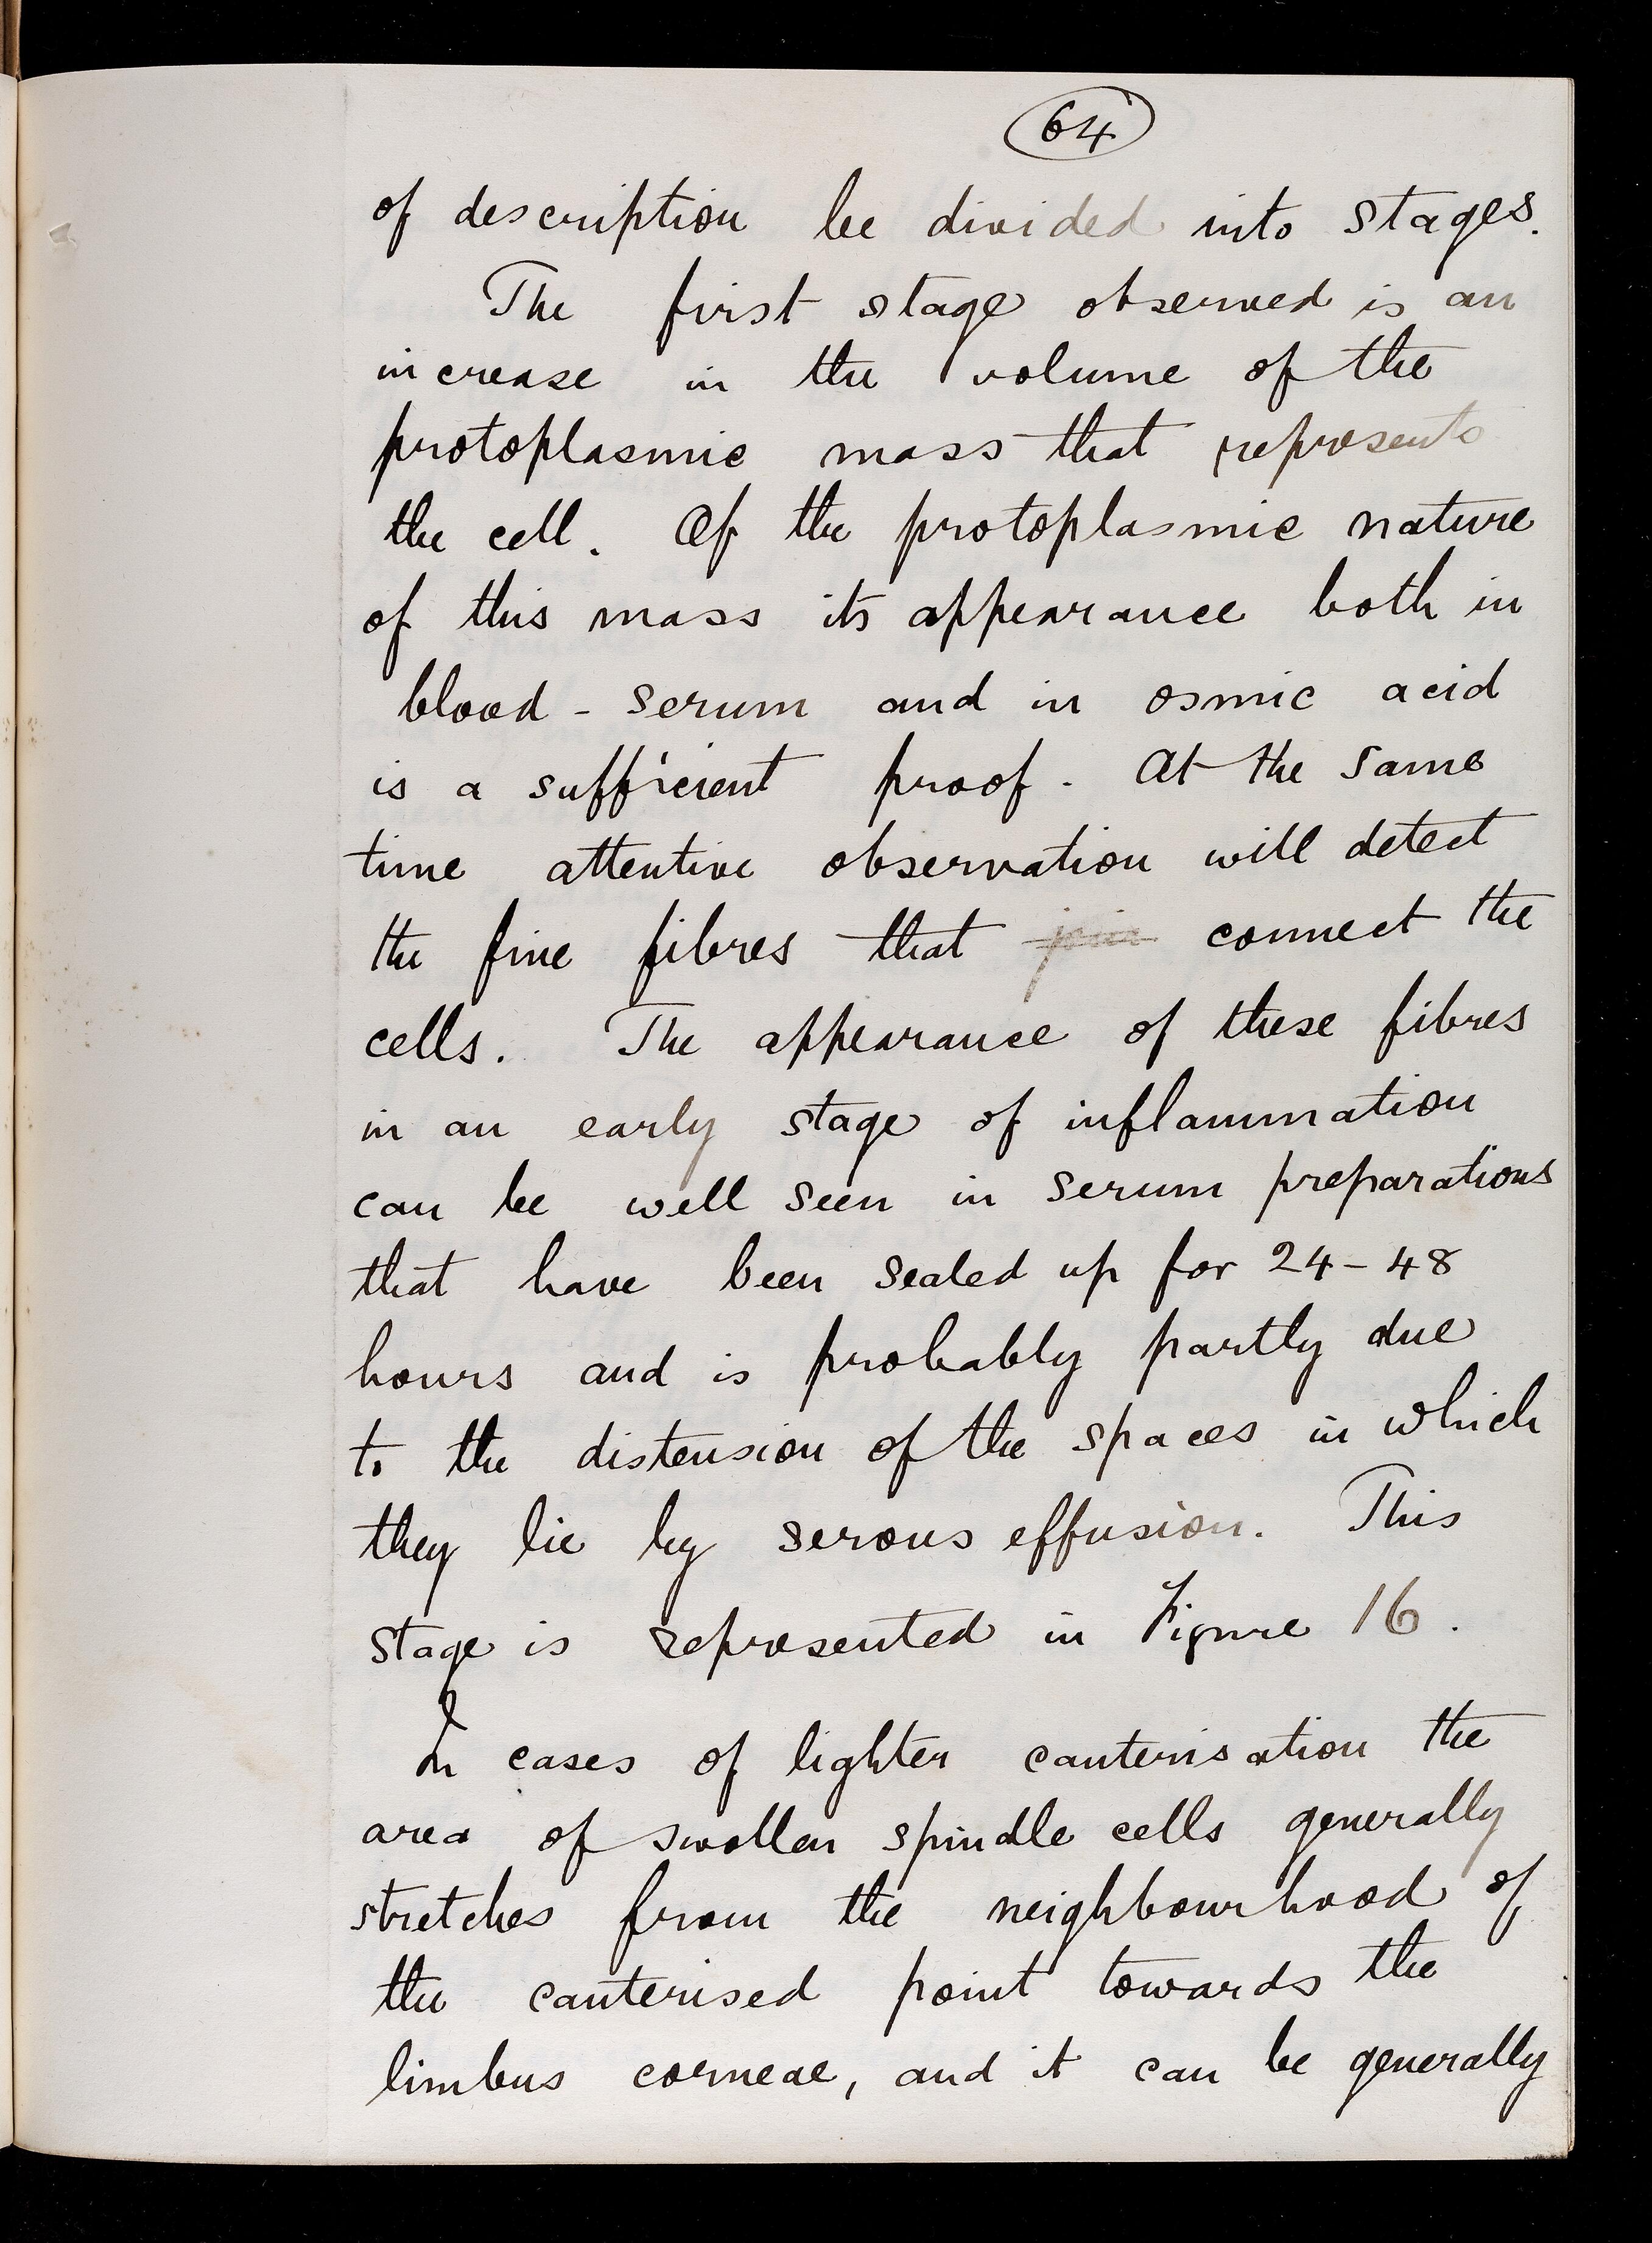 64
of description be divided into stages.
The first stage observed is an
increase in the volume of the
protoplasmic mass that represents
the cell. Of the protoplasmic nature
of this mass its appearance both in
blood - serum and in osmic acid
is a sufficient proof. At the same
time attentive observation will detect
the fine fibres that join connect the
cells. The appearance of these fibres
in an early stage of inflammation
can be well seen in serum preparations
that have been sealed up for 24-48
hours and is probably partly due
to the distension of the spaces in which
they lie by serous effusion. This
stage is represented in Figure 16.
In cases of lighter cauterisation the
area of swollen spindle cells generally
stretches from the neighbourhood of
the cauterised point towards the
limbus corneae, and it can be generally